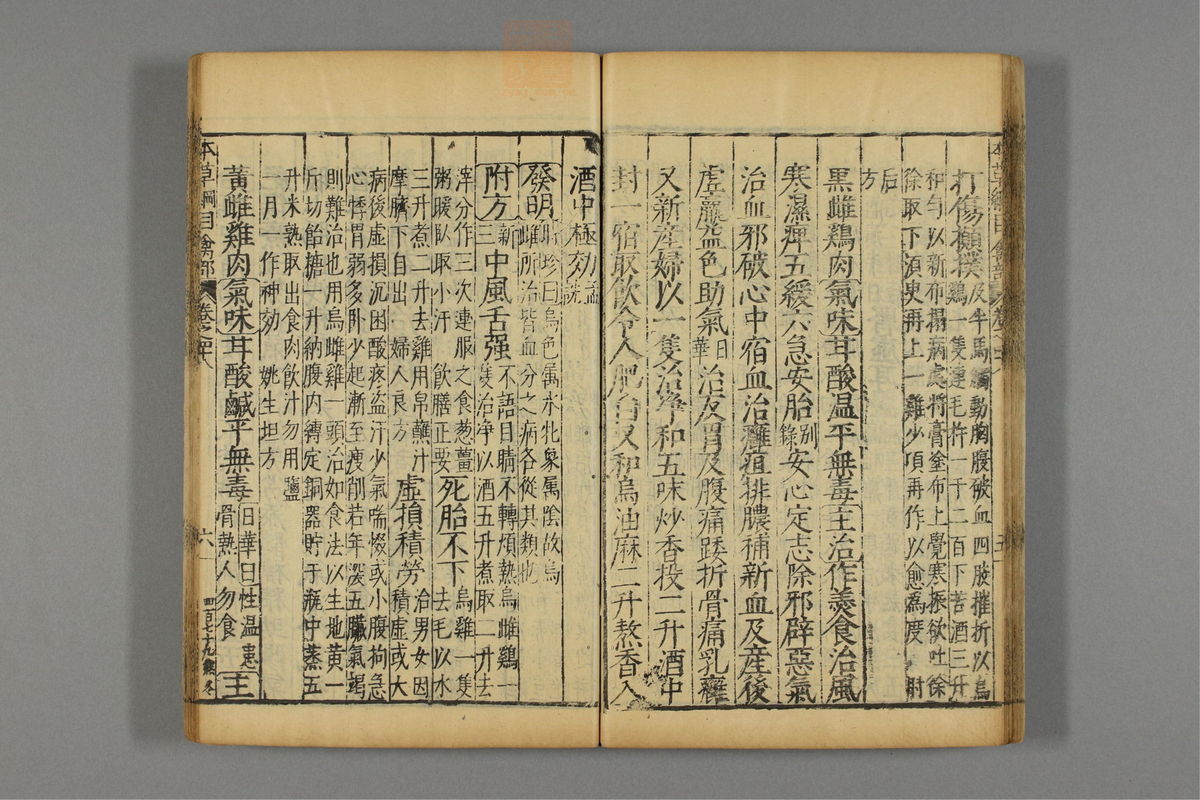 打傷攧撲及牛馬觸動胸腹破血四肢摧折以烏
雞一隻連毛杵一千二百下苦酒三升
和勻以新布搨病處將膏塗布上覺寒振欲吐徐
徐取下須臾再上一雞少頃再作以愈為度肘
后
方
黑雌鷄肉氣味甘酸温平無毒主治作羹食治風
寒濕痺五緩六急安胎别錄安心定志除邪辟惡氣
治血邪破心中宿血治癰疽排膿補新血及産後
虚羸益色助氣日華治反胃及腹痛踒折骨痛乳癰
又新産婦以一隻治淨和五味炒香投二升酒中
封一宿取飲令人肥白又和烏油麻二升熬香入
酒中極効孟詵
發明時珍曰烏色屬水牝象屬陰故烏
雌所治皆血分之病各從其類也
附方新三中風舌强不語目睛不轉煩熱烏雌鷄一
隻治净以酒五升煮取二升去
滓分作三次連服之食葱薑
粥暖臥取小汗飲膳正要死胎不下烏雞一隻
去毛以水
三升煮二升去雞用帛蘸汁
摩臍下自出婦人良方虚損積勞治男女因
積虚或大
病後虚損沉困酸疼盗汗少氣喘惙或小腹拘急
心悸胃弱多卧少起漸至瘦削若年深五臟氣竭
則難治也用烏雌雞一頭治如食法以生地黄一
斤切飴糖一升納腹内縳定銅器貯于瓶中蒸五
升米熟取出食肉飲汁勿用鹽
一月一作神効姚生坦方
黃雌雞肉氣味甘酸鹹平無毒日華曰性温患
骨熱人勿食主
本草綱目禽部
六